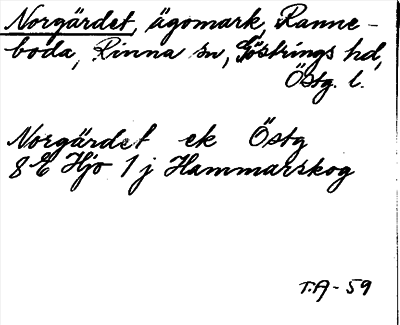 Norgärdet, ägomark, Ranne-
boda, Rinna sn, Göstrings hd,
Östg. l.
Norgärdet ek Östg
8 E Hjo 1 j Hammarskog
T.A-59